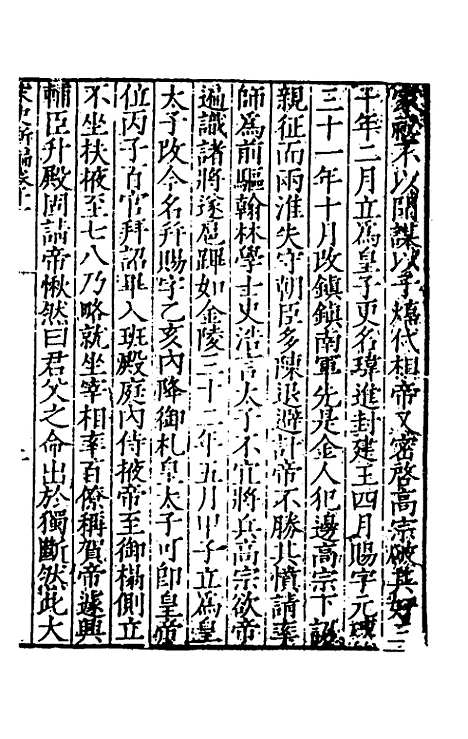 家秘不以聞謀以子熺代相帝又密啓高宗破其姦三
十年二月立爲皇子更名瑋進封建王四月賜字元瓌
三十一年十月改鎮鎮南軍先是金人犯邊高宗下詔
親征而兩淮失守朝臣多陳退避計帝不勝其憤請率
師爲前驅翰林學士史浩言太子不宜將兵高宗欲帝
遍識諸將遂扈蹕如金陵三十二年五月甲子立爲皇
太子改今名幷賜字乙亥內降御札皇太子可卽皇帝
位丙子百官拜詔畢入班殿庭內侍掖帝至御榻側立
不坐扶掖至七八乃略就坐宰相率百僚稱賀帝遽興
輔臣升殿固請帝愀然曰君父之命出於獨斷然此大
宋史新編卷十一